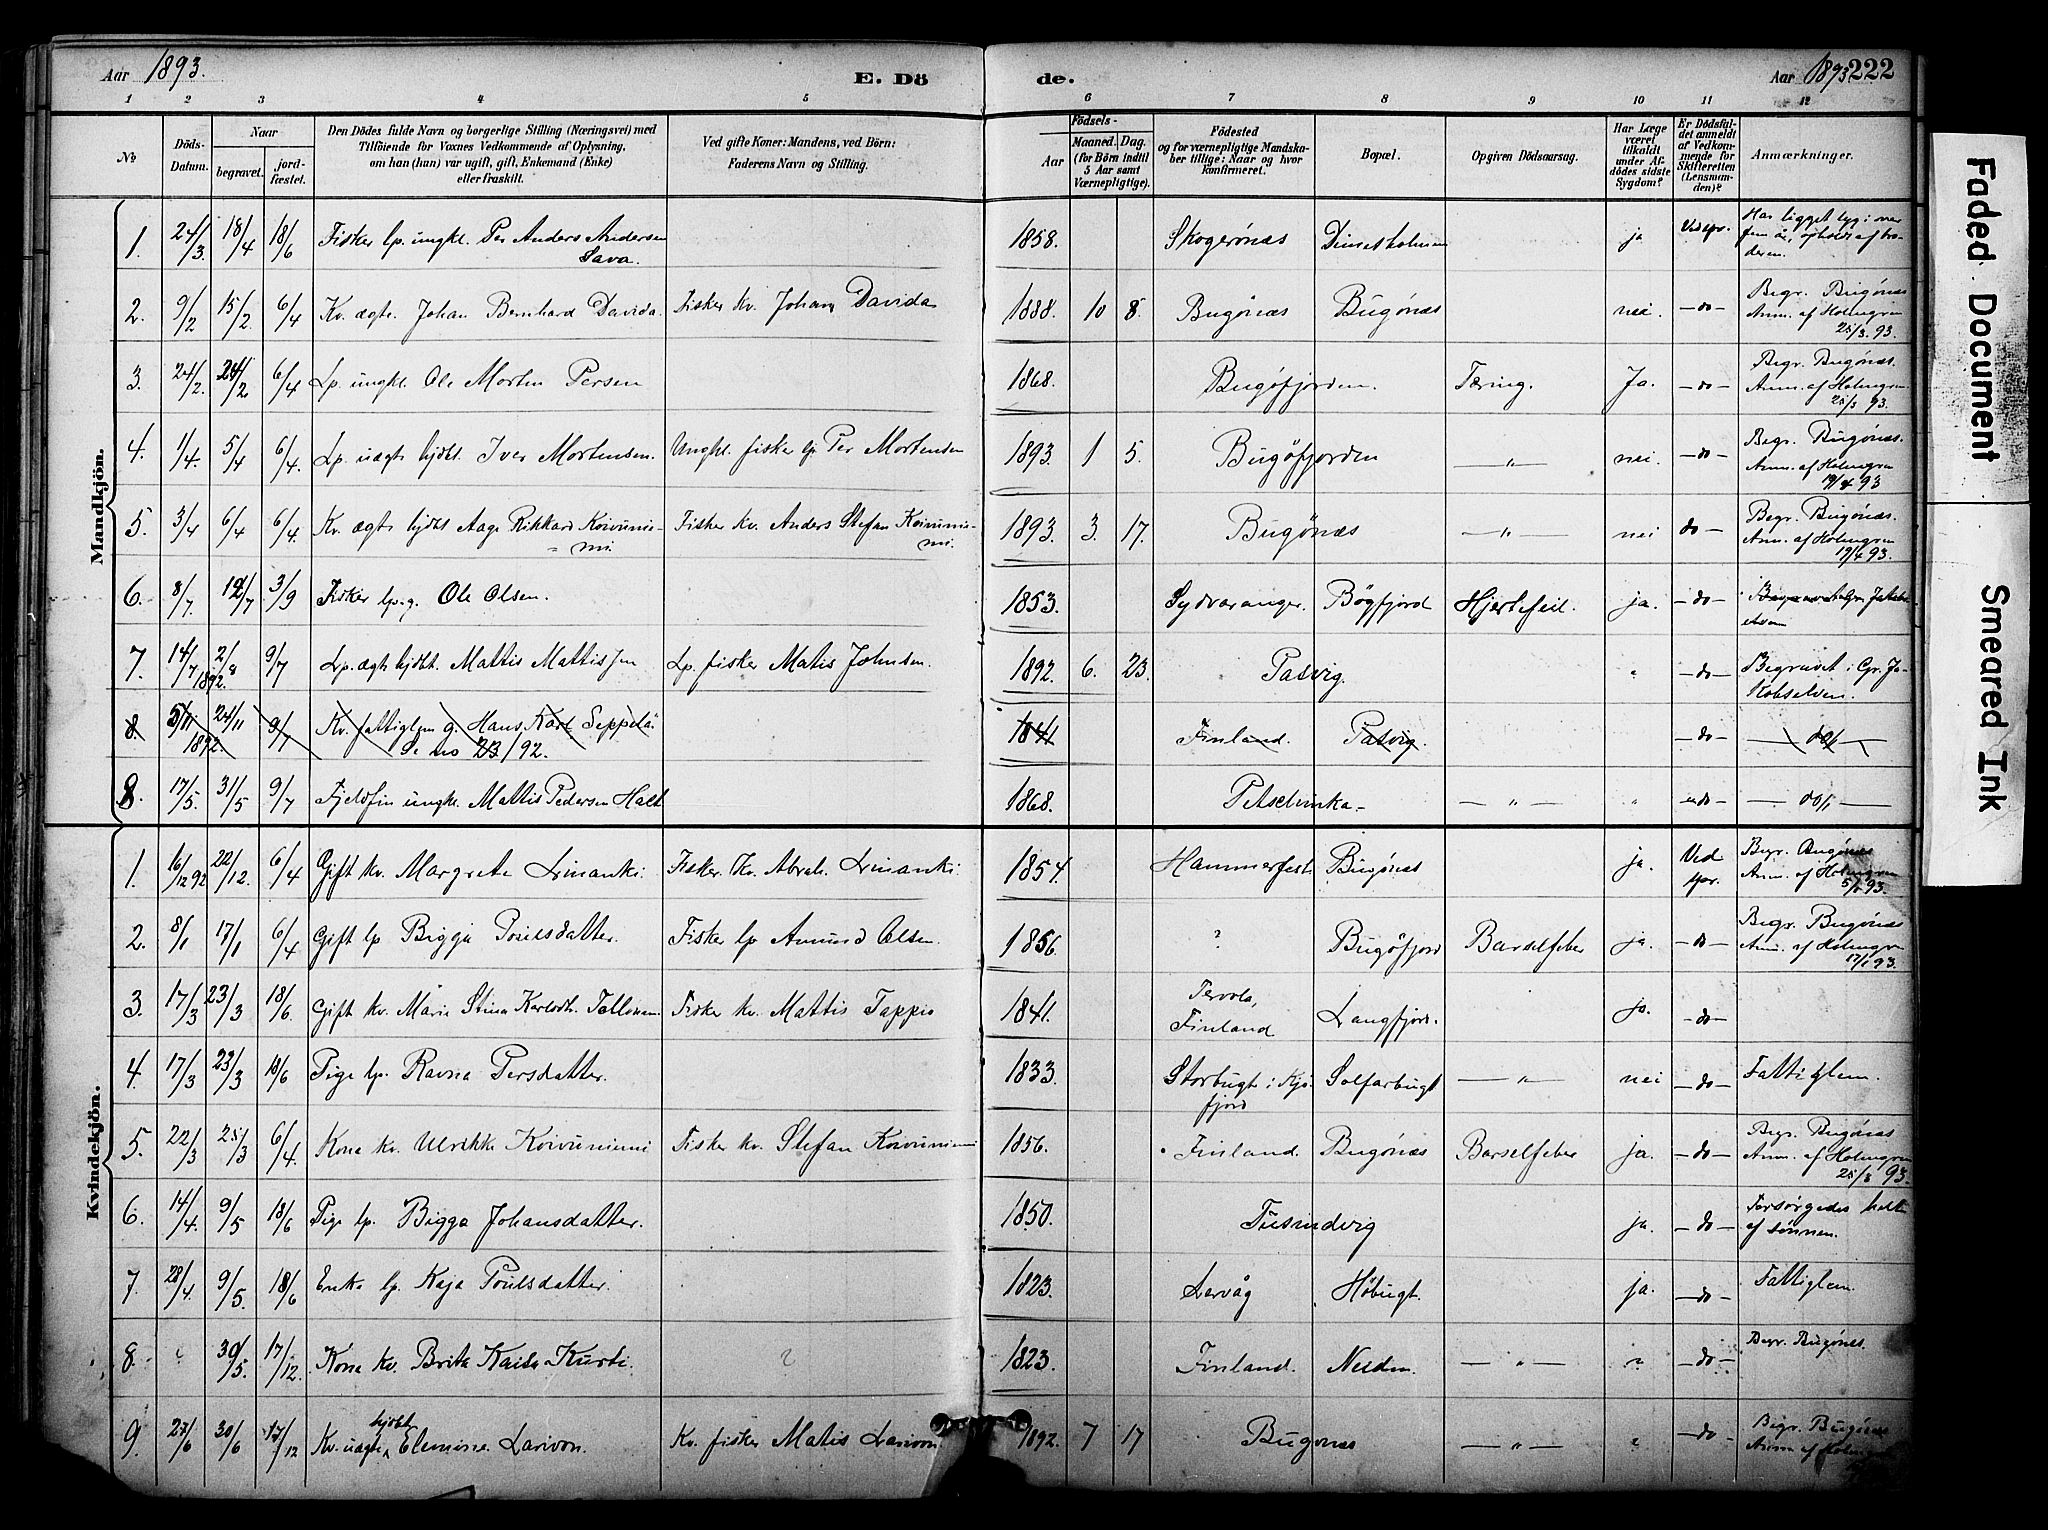 Aar 1893. E. Dö de. Aar 1893 222
1 2 3 4 5 6 7 8 9 10 11 12
No
Döds-Datum.
Naar
begravet.
jord-fæstet.
Den Dödes fulde Navn og borgerlige Stilling (Næringsvei) med
Tilföiende for Voxnes Vedkommende af Oplysning,
om han (hun) var ugift, gift, Enkemand (Enke)
eller fraskilt.
Ved gifte Koner: Mandens, ved Börn:
Faderens Navn og Stilling.
Födsels-
Aar
Maaned. Dag.
(for Börn indtil
5 Aar samt
Værnepligtige).
Födested
og for værnepligtige Mandska-
ber tillige: Naar og hvor
konfirmeret.
Bopæl.
Opgiven Dödsaarsag.
Har Læge
været
tilkaldt
under Af-
dödes sidste
Sygdom?
Er Dödsfal-
det anmeldt
af Vedkom-
mende for
Skifteretten
(Lensman-
den)?
Anmærkninger.
Mandkjön.
1. 24/3. 18/4 18/6 Fisker lp. ungkl. Per Anders Andersen Sava. 1858. Skogerönæs ja Har ligget syg i over
2. 9/2 15/2. 6/4 Kv. ægte. Johan Bernhard Davida. Fisker kv. Johan Davida 1888. 10 8. Bugönæs Bugönæs nei. -do- Begr. Bugönæs Anm. af Holmgren 25/3. 93.
3. 24/2. 24/2. 6/4 Lp. ungkl. Ole Morten Persen 1868. Bugöfjorden. Tæring. Ja. -do- Begr. Bugönæs. Anm. af Holmgren 25/3 93.
4. 1/4. 5/4 6/4. Lp. uægte hjdbt. Iver Mortensen. Ungkl. fisker lp Per Mortensen 1893. 1 5. Bugöfjorden -"- nei. -do- Begr. Bugönæs. Anm. af Holmgren 19/4 93
5. 3/4 6/4 6/4. Kv. ægte hjdbt Aage Rikkard Koivunie-mi. Fisker kv. Anders Stefan Koivunie-mi. 1893. 3. 17. Bugönæs -"- nei do- Begr. Bugönæs. Anm. af Holmgren 19/4 93.
6. 8/7. 12/7 3/9 Fisker lp. g. Ole Olsen. 1853. Sydvaranger. Bögfjord Hjertefeil. ja. -do-
7. 14/7 1892. 2/8 9/7 Lp. ægte hjdbt. Mattis Mattisen Lp. fisker Matis Johnsen. 1892. 6. 23. Pasvig. " -do- Begravet i Gr. Ja-kobselven.
8 5/11 1892. 24/11 9/7 Kv. fattiglem g. Hans Karl Seppela Se no 23/92. 1841 Finland. Pasvig. -do- -do/1-
8. 17/5. 31/5 9/7 Fjeldfin ungkl. Mattis Pedersen Halt 1868. Petschinka- -"- " -do- -do/1-
Kvindekjön.
1. 16/12 92 22/12. 6/4 Gift kv. Margrete Linanki. Fisker. Kv. Abrah. Linanki. 1854. Hammerfest Bugönæs ja. Ved spr. Begr. Bugönæs Anm. af Holmgren 5/1 93.
2. 8/1 17/1 6/4 Gift lp Bigga Poulsdatter. Fisker lp Amund Olsen. 1856. ? Bugöfjord Barselfeber ja. -do- Begr. Bugönæs Anm. af Holmgren 17/1 93.
3. 17/3 23/3 18/6. Gift kv. Maria Stina Karlsdtr. Fisker kv. Mattis Tappio 1841. Tervola, Finland Langfjord. ja. -do-
4. 17/3 23/3 18/6 Pige lp. Ravna Persdatter. 1833. Storbugt i Kjö-fjord Solfarbugt -"- nei -do- Fattiglem.
5. 22/3 25/3 6/4. Kone kv. Ulrikke Koivuniemi Fisker kv. Stefan Koivuniemi 1856. Finland. Bugönæs Barselfeber ja. -do- Begr. Bugönæs Anm. af Holmgren 25/3 93.
6. 14/4. 9/5 18/6 Pige lp. Bigga Johansdatter. 1850. Tusindvig ja. -do- Forsörgedes helt af sönnen.
7. 28/4. 9/5. 18/6 Enke lp. Kaja Poulsdatter. 1823. Lervåg Höbugt. ja. -do- Fattiglem.
8. " 30/5. 17/12. Kone kv. Brita Kaisa Kurti. ? 1823. Finland. Neiden. -"- ? -do- Begr. Bugönes.
9. 27/6 30/6 17/12 Kv. uægte hjdbt Elemine Larivon. Kv. fisker Matis Larivon. 1892. 7 17 Bugönæs -"- ? -do- Begr. Bugönæs Anm af Holmgren
Faded Document
Smeared Ink